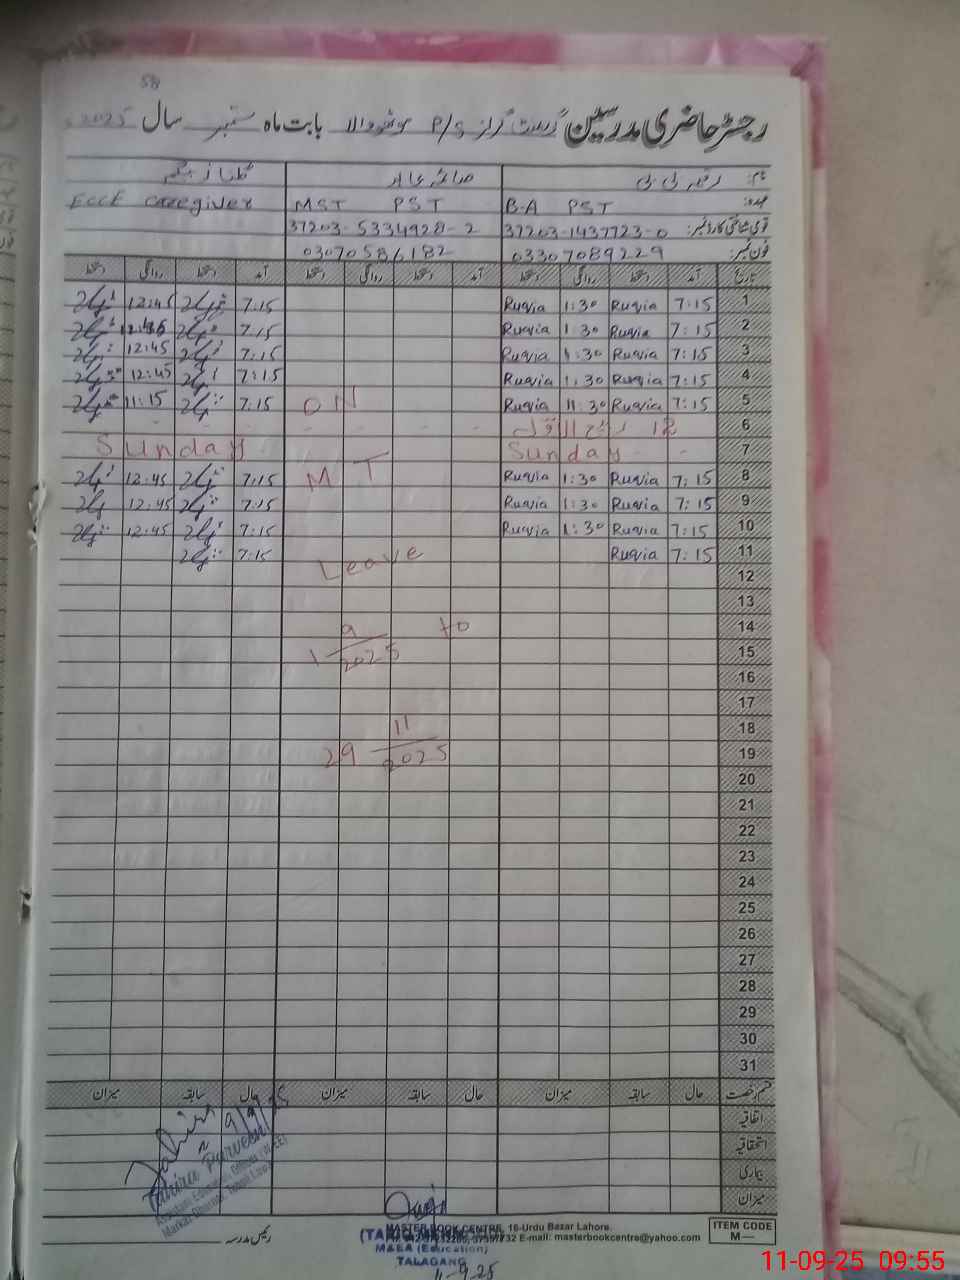 58
رجسٹر حاضری مدرسین گورنمنٹ گرلز P/S بابت ماہ ستمبر سال 2025
نام:
عہدہ: B-A PST MST PST ECCE Caregiver
قومی شناختی کارڈ نمبر: 37203-1437723-0 37203-5334928-2
فون نمبر: 03307089229 03070586182
تاریخ آمد دستخط روانگی دستخط آمد دستخط روانگی دستخط آمد دستخط روانگی دستخط
1 7:15 Ruqia 1:30 Ruqia 7:15 12:45
2 7:15 Ruqia 1:30 Ruqia 7:15 12:45
3 7:15 Ruqia 1:30 Ruqia 7:15 12:45
4 7:15 Ruqia 1:30 Ruqia 7:15 12:45
5 7:15 Ruqia 11:30 Ruqia ON 7:15 11:15
6 12 ربیع الاول
7 Sunday Sunday
8 7:15 Ruqia 1:30 Ruqia MT 7:15 12:45
9 7:15 Ruqia 1:30 Ruqia 7:15 12:45
10 7:15 Ruqia 1:30 Ruqia 7:15 12:45
11 7:15 Ruqia Leave 7:15
12
13
14 9 to
15 1 2025
16
17
18 11
19 29 2025
20
21
22
23
24
25
26
27
28
29
30
31
قسم رخصت حال سابقہ میزان حال سابقہ میزان حال سابقہ میزان
اتفاقیہ
استحقاقیہ
بیماری
میزان
Tahira
9/9/25
Tahira Parveen
Assistant Education Officer (W-EE)
رئیس مدرسہ
MASTER BOOK CENTRE, 16-Urdu Bazar Lahore.
E-mail: masterbookcentre@yahoo.com
ITEM CODE
M—
M&EA (Education)
TALAGANG
11-9-25
11-09-25 09:55